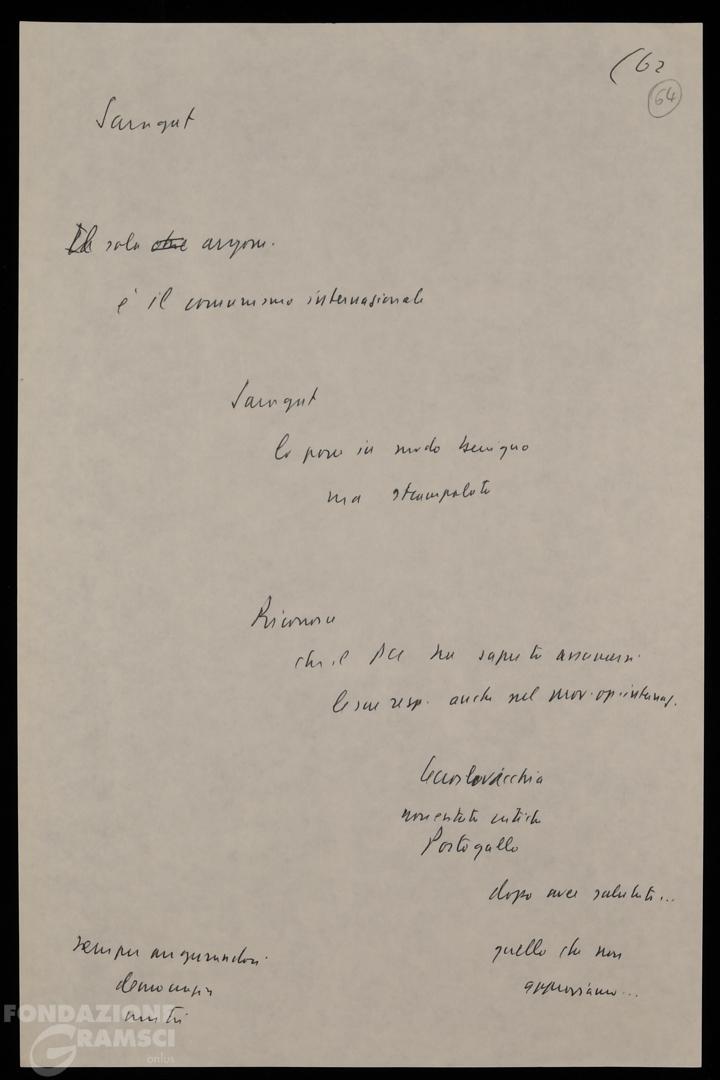 (62
64
Saragat
Il solo che argom.
è il comunismo internazionale
Saragat
lo pone in modo benigno
ma strampalato
Riconosce
che il PCI ha saputo assumersi
le sue resp. anche nel mov. op. internaz.
Cecoslovacchia
critiche
Portogallo
dopo aver salutato...
sempre augurandoci
quello che non
democrazia
approviamo...
unità
FONDAZIONE
GRAMSCI
onlus